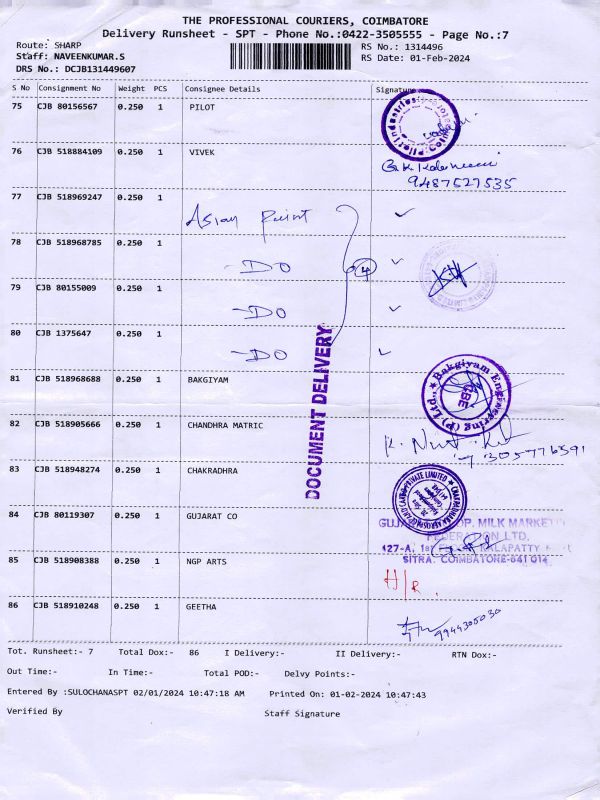 THE PROFESSIONAL COURIERS, COIMBATORE
Delivery Runsheet - SPT - Phone No.:0422-3505555 - Page No.:7
Route: SHARP
RS No.: 1314496
Staff: NAVEENKUMAR.S
RS Date: 01-Feb-2024
DRS No.: DCJB131449607
S No Consignment No Weight PCS Consignee Details Signature
75 CJB 80156567 0.250 1 PILOT
76 CJB 518884109 0.250 1 VIVEK
9487527535
77 CJB 518969247 0.250 1
Asian Paint
78 CJB 518968785 0.250 1
-DO 4
79 CJB 80155009 0.250 1
-DO
80 CJB 1375647 0.250 1
-DO
DOCUMENT DELIVERY
81 CJB 518968688 0.250 1 BAKGIYAM
Bakgiyam Engineering (P) Ltd.,
GBE
82 CJB 518905666 0.250 1 CHANDHRA MATRIC
7305776591
83 CJB 518948274 0.250 1 CHAKRADHRA
84 CJB 80119307 0.250 1 GUJARAT CO
OP. MILK MARKET
FEDERATION LTD.
KALAPATTY
SITRA, COIMBATORE-641 014
85 CJB 518908388 0.250 1 NGP ARTS
H/R.
86 CJB 518910248 0.250 1 GEETHA
9944305030
Tot. Runsheet:- 7 Total Dox:- 86 I Delivery:- II Delivery:- RTN Dox:-
Out Time:- In Time:- Total POD:- Delvy Points:-
Entered By :SULOCHANASPT 02/01/2024 10:47:18 AM Printed On: 01-02-2024 10:47:43
Verified By Staff Signature